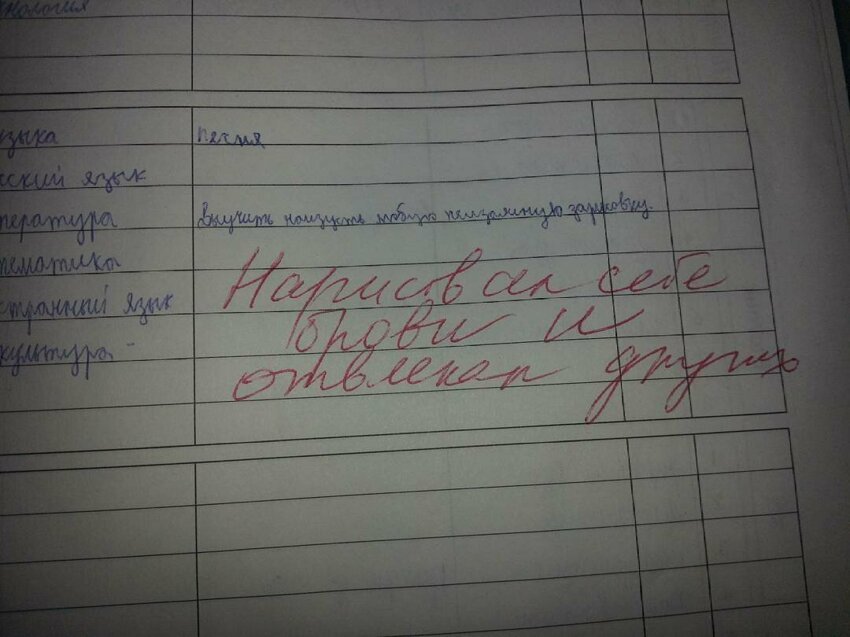 нология
узыка песня
сский язык
тература выучить наизусть любую пейзажную зарисовку.
тематика
странный язык
культура -
Нарисовал себе
брови и
отвлекал других